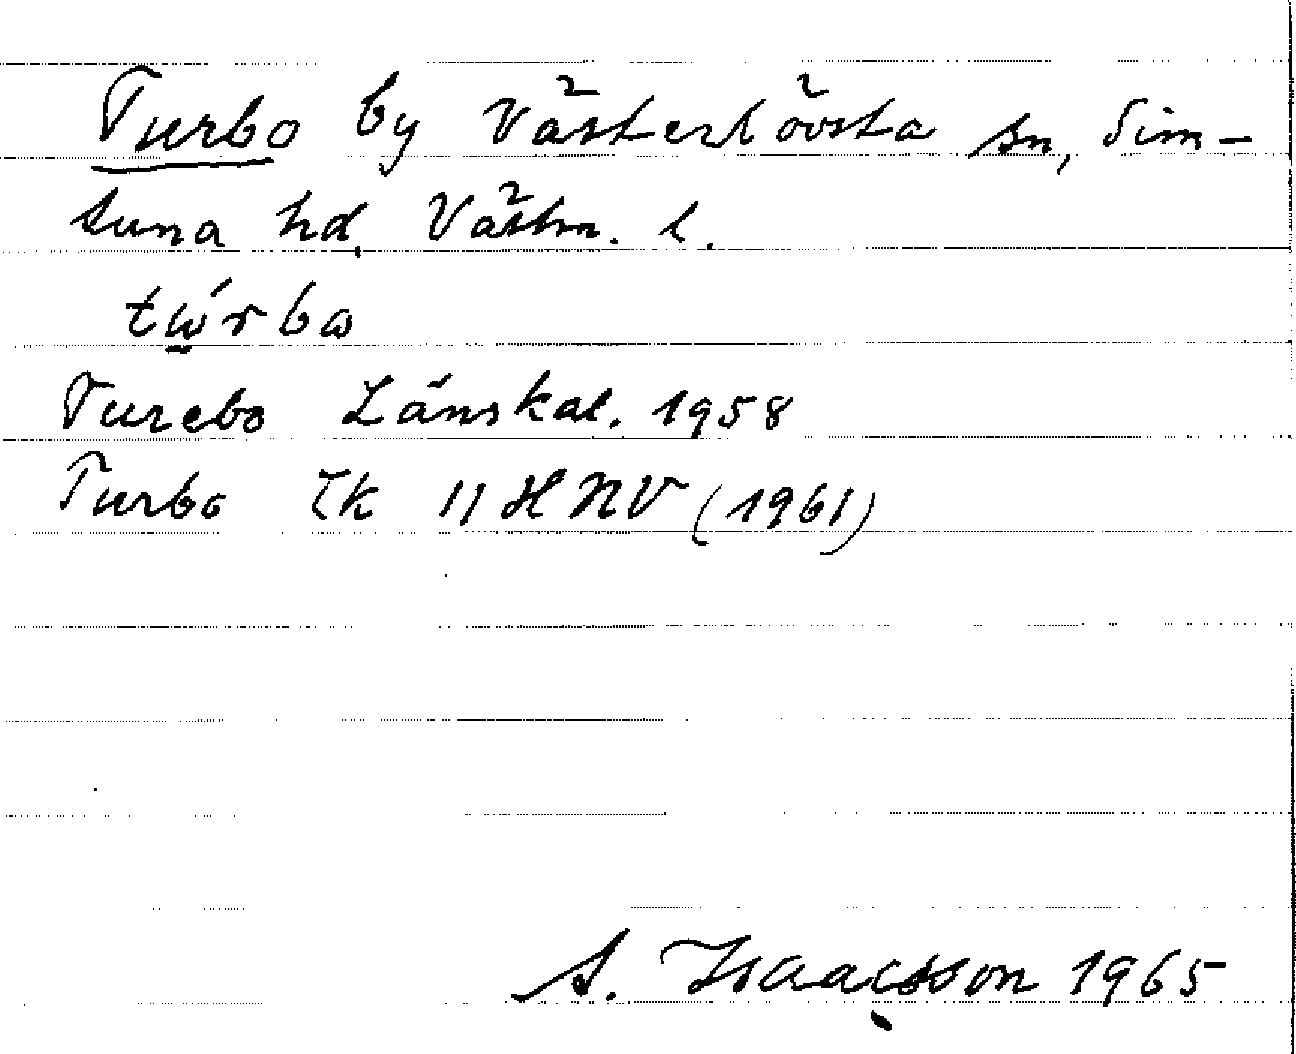 Turbo by Västerlövsta sn, Sim-
tuna hd, Västm. l.
tώrbω
Turebo Länskal. 1958
Turbo Ek 11 H NV (1961)
A. Isaacsson 1965